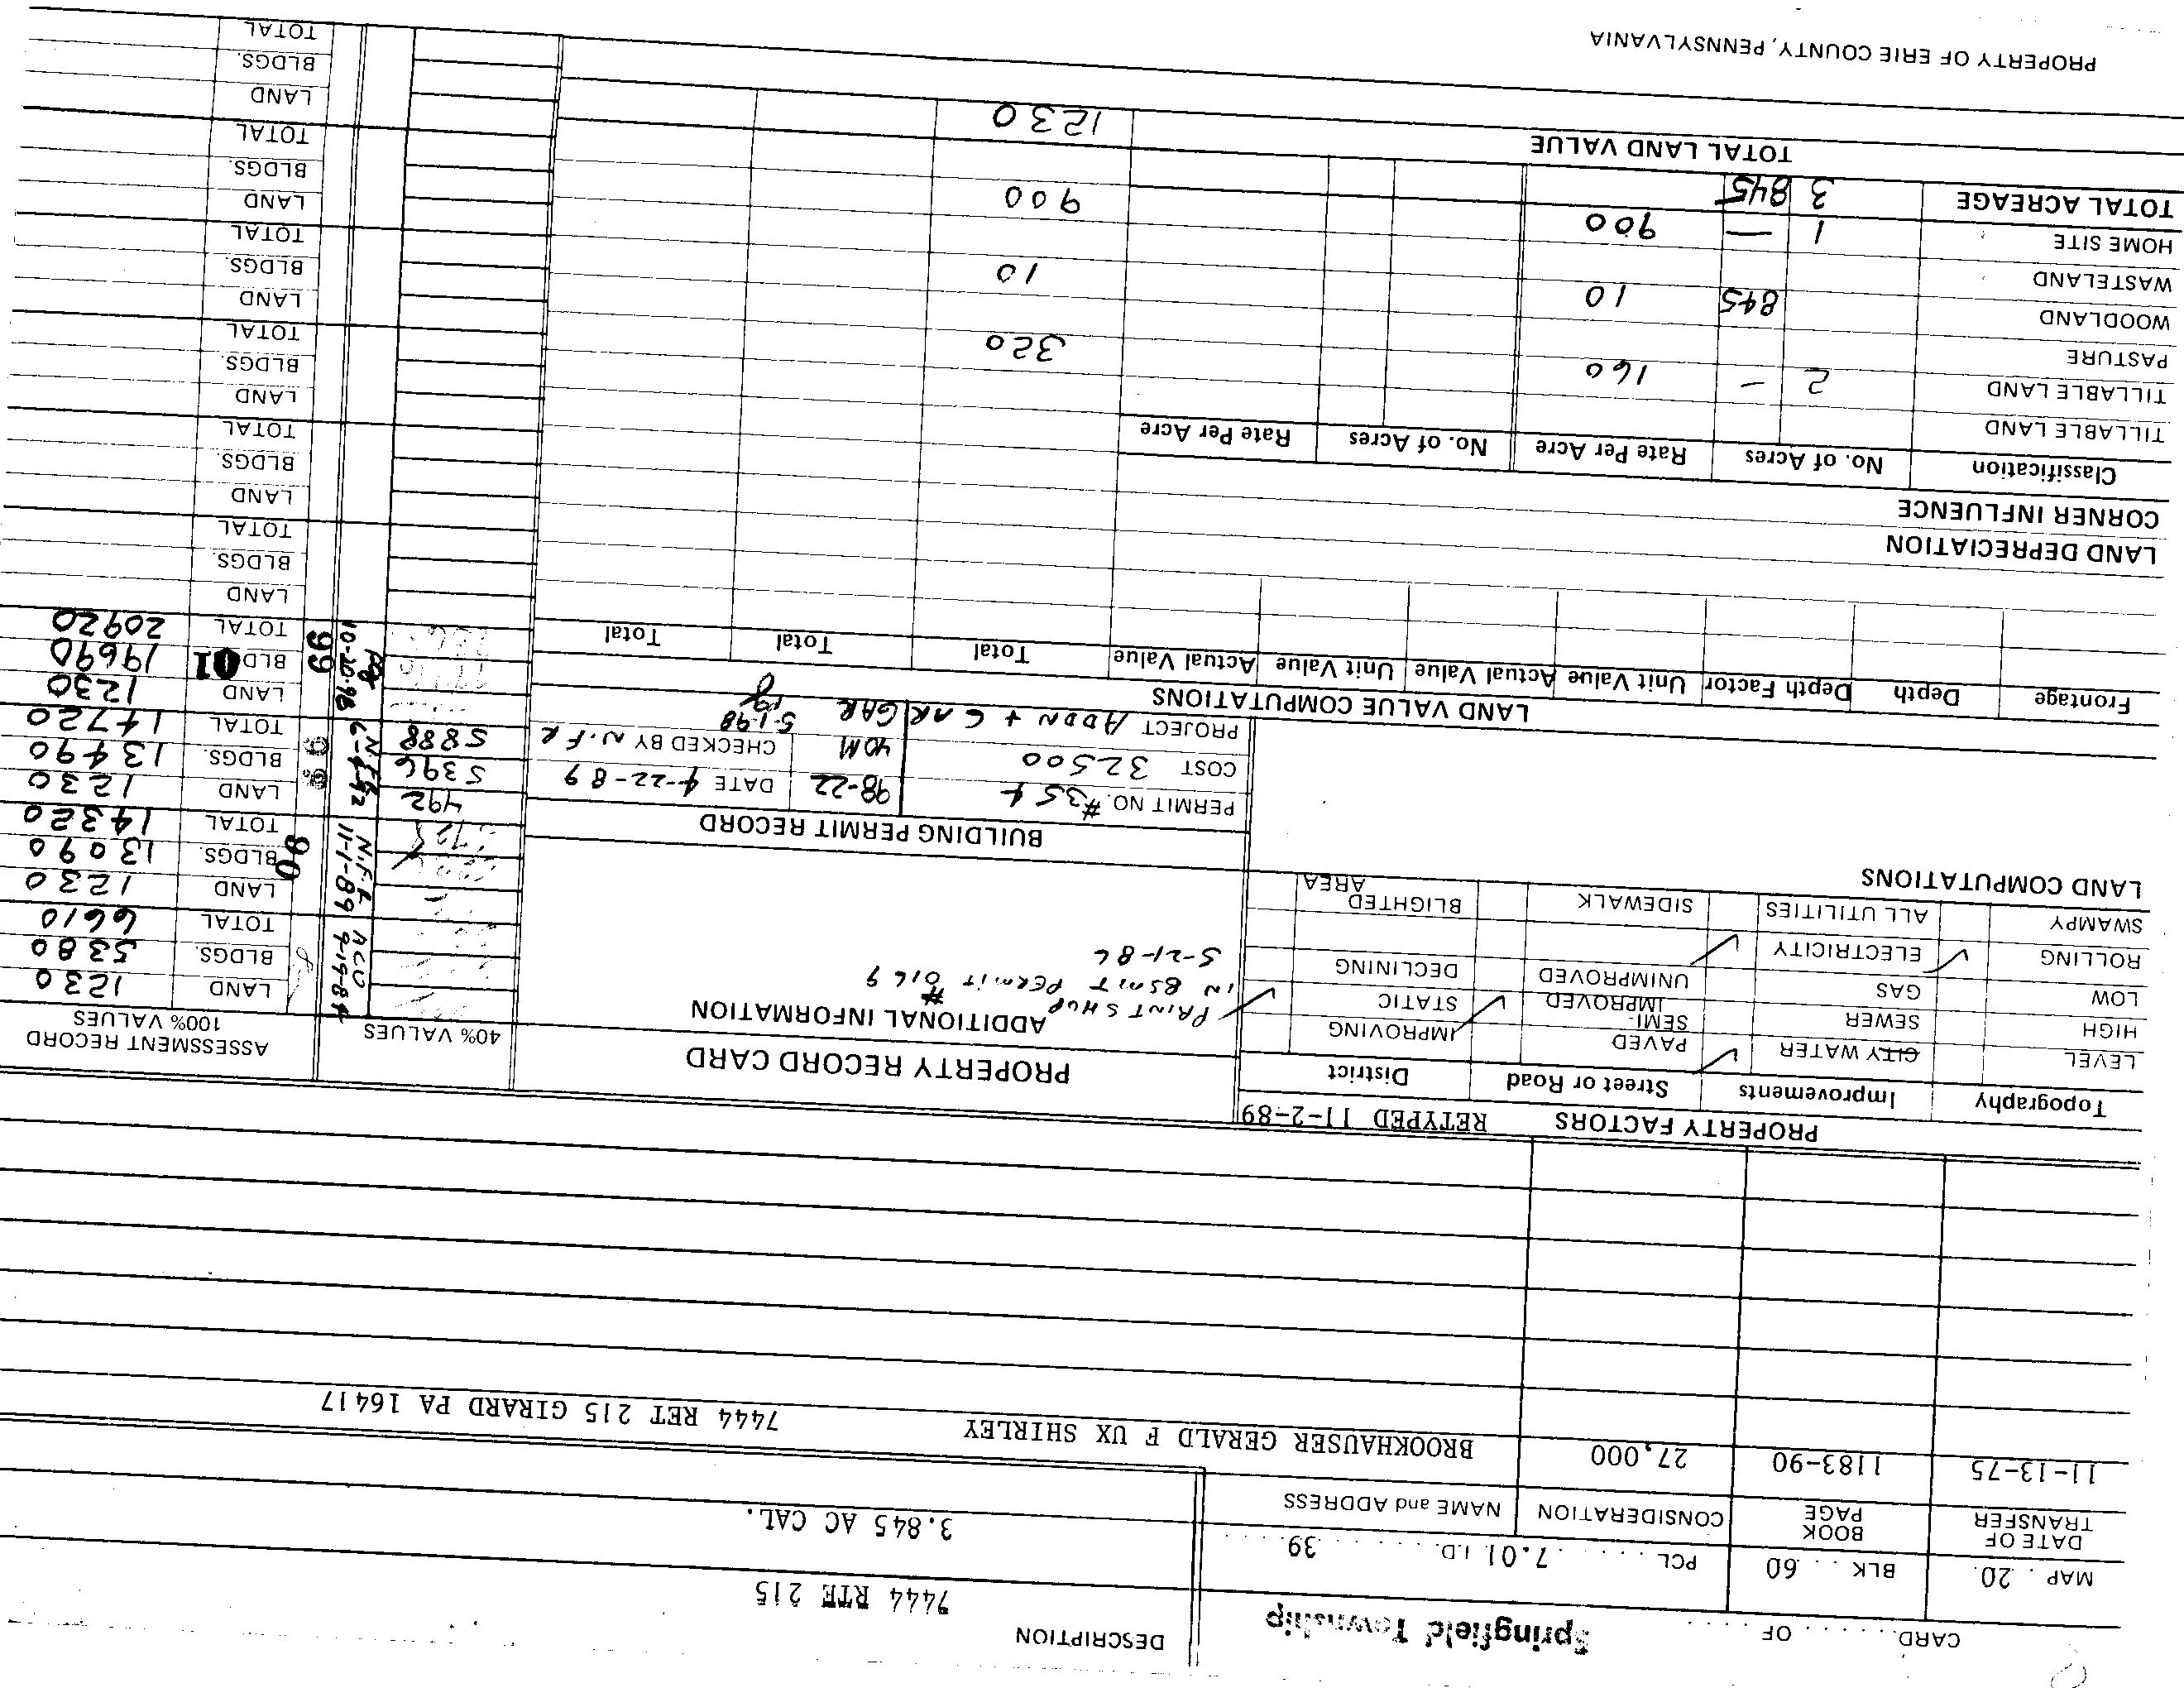 CARD . . . . . . OF . . . . . .
Springfield Township
DESCRIPTION
7444 RTE 215
MAP . 20. BLK . . . 60 PCL . . . . . . 7.01 I.D. . . . . . 39 . . . .
3.845 AC CAL.
DATE OF TRANSFER BOOK PAGE CONSIDERATION NAME and ADDRESS
11-13-75 1183-90 27,000 BROOKHAUSER GERALD F UX SHIRLEY 7444 RET 215 GIRARD PA 16417
PROPERTY FACTORS RETYPED 11-2-89
Topography Improvements Street or Road District
LEVEL CITY WATER ✓ PAVED IMPROVING
HIGH SEWER SEMI-IMPROVED ✓ STATIC ✓
LOW GAS UNIMPROVED DECLINING
ROLLING ✓ ELECTRICITY ✓
SWAMPY ALL UTILITIES SIDEWALK BLIGHTED AREA
LAND COMPUTATIONS
PROPERTY RECORD CARD
ADDITIONAL INFORMATION
PRINT SHOP
IN BSMT PERMIT # 0169
5-21-86
BUILDING PERMIT RECORD
PERMIT NO. #354 98-22 DATE 4-22-89
COST 32500 40M CHECKED BY N.F.R
PROJECT ADDN + GAR GAR 5-1-98
40% VALUES
492
5396
5888
ASSESSMENT RECORD
100% VALUES
LAND 1230
BLDGS. 5380
TOTAL 6610
ACO 9-19-84
LAND 1230
BLDGS. 13090
TOTAL 14320
90
N.F.R 11-1-89
LAND 1230
BLDGS. 13490
TOTAL 14720
6-4-92
LAND 1230
BLD 01 19690
TOTAL 20920
99
10-20-98
LAND
BLDGS.
TOTAL
LAND
BLDGS.
TOTAL
LAND
BLDGS.
TOTAL
LAND
BLDGS.
TOTAL
LAND
BLDGS.
TOTAL
LAND
BLDGS.
TOTAL
LAND VALUE COMPUTATIONS
Frontage Depth Depth Factor Unit Value Actual Value Unit Value Actual Value Total Total Total
LAND DEPRECIATION
CORNER INFLUENCE
Classification No. of Acres Rate Per Acre No. of Acres Rate Per Acre
TILLABLE LAND
TILLABLE LAND 2 - 160 320
PASTURE
WOODLAND 845 10 10
WASTELAND
HOME SITE 1 — 900 900
TOTAL ACREAGE 3 845
TOTAL LAND VALUE 1230
PROPERTY OF ERIE COUNTY, PENNSYLVANIA